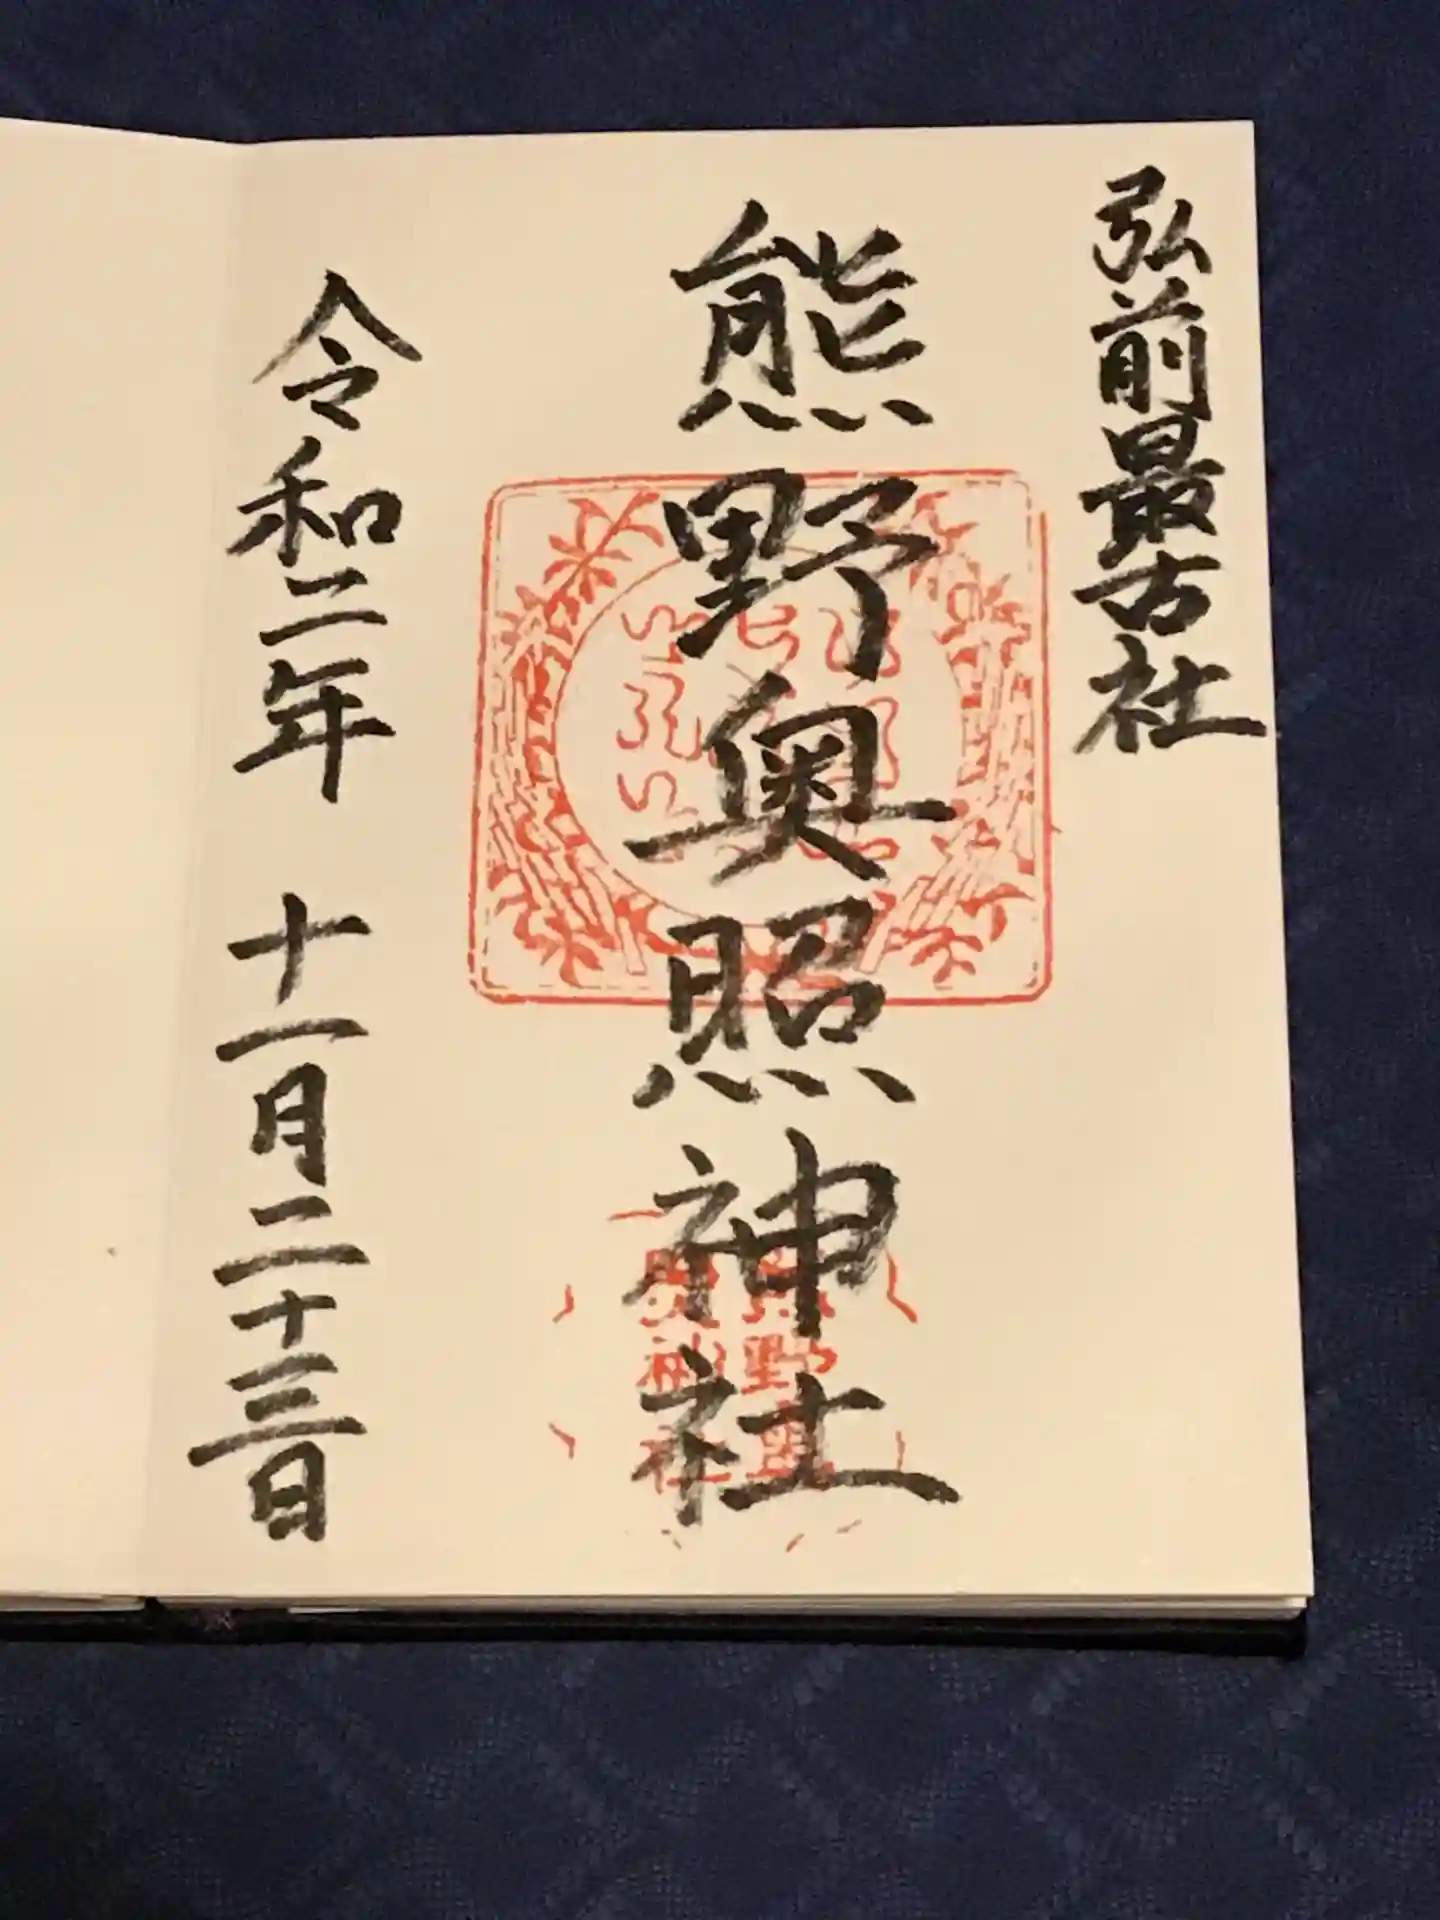 弘前最古社
熊野奥照神社
熊野奥
照神社
令和二年 十一月二十三日